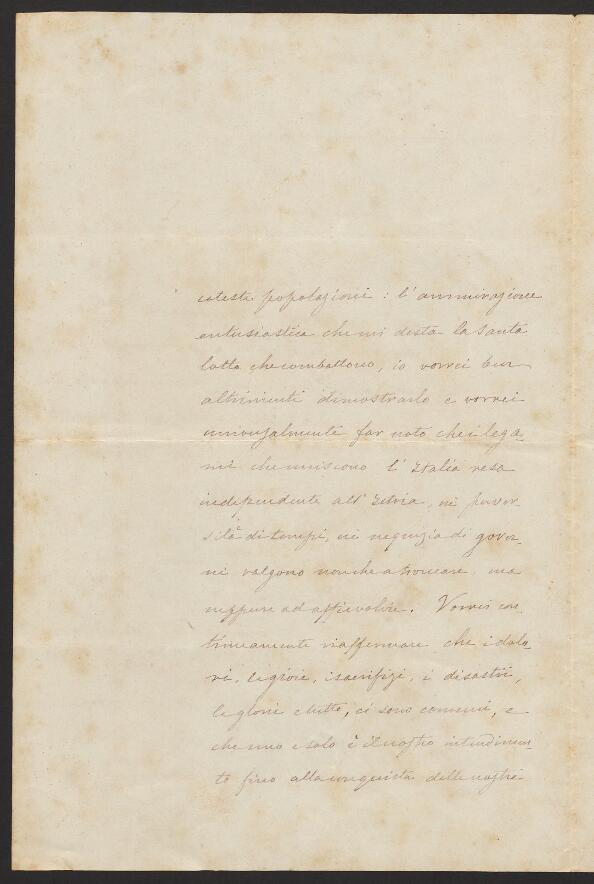 coteste popolazioni: l'ammirazione
entusiastica che mi desta la santa
lotta che combattono, io vorrei ben
altrimenti dimostrarlo e vorrei
universalmente far noto che i lega-
mi che uniscono l'Italia resa
indipendente all'Istria, nè perver-
sità di tempi, nè nequizia di gover-
ni valgono nonchè a troncare, ma
neppure ad affievolire. Vorrei con-
tinuamente riaffermare che i dolo-
ri, le gioie, i sacrifizi, i disastri,
le glorie e lutto, ci sono comuni, e
che uno e solo è il nostro intendimen-
to fino alla conquista delle nostre